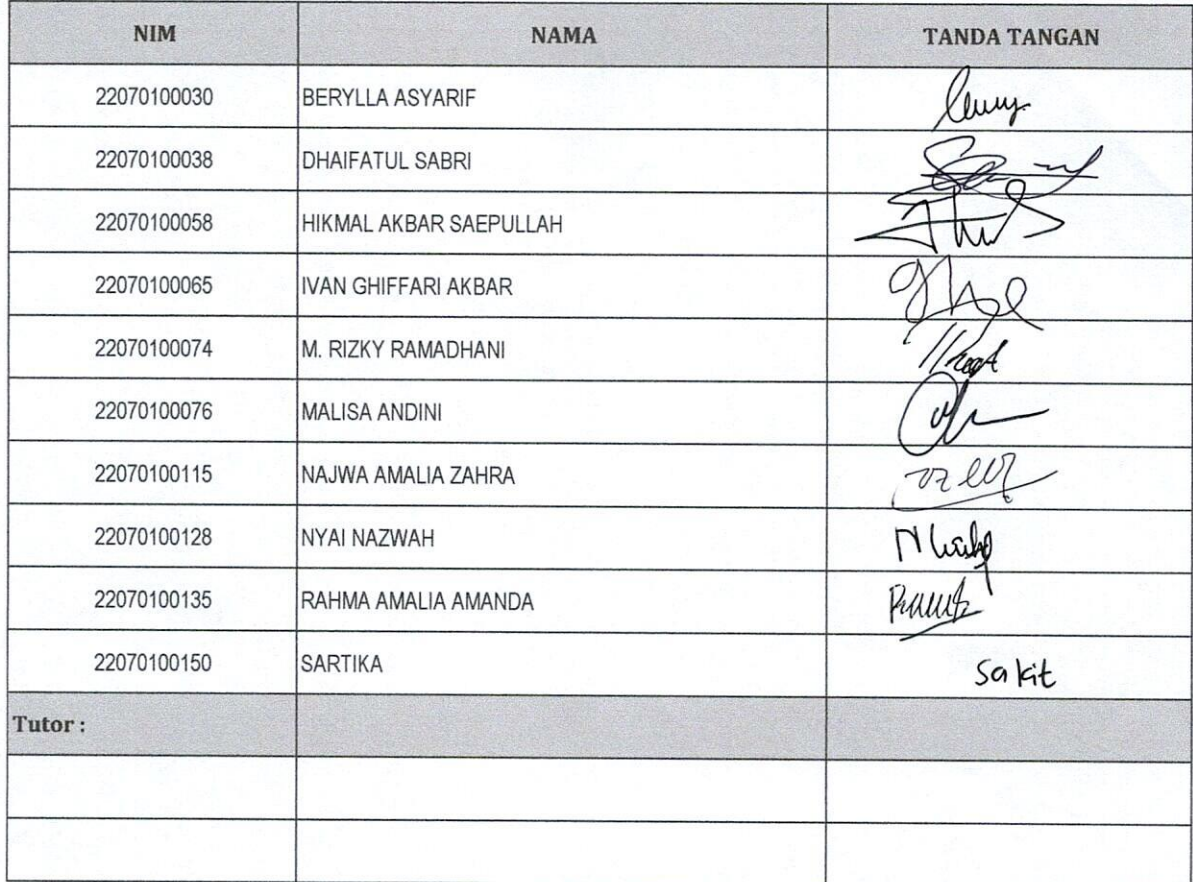 NIM NAMA TANDA TANGAN
22070100030 BERYLLA ASYARIF
22070100038 DHAIFATUL SABRI
22070100058 HIKMAL AKBAR SAEPULLAH
22070100065 IVAN GHIFFARI AKBAR
22070100074 M. RIZKY RAMADHANI
22070100076 MALISA ANDINI
22070100115 NAJWA AMALIA ZAHRA
22070100128 NYAI NAZWAH
22070100135 RAHMA AMALIA AMANDA
22070100150 SARTIKA sakit
Tutor :